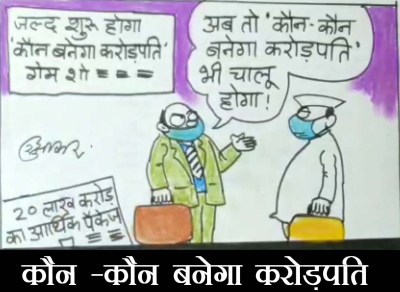 जल्द शुरू होगा
'कौन बनेगा करोड़पति'
गेम शो
अब तो 'कौन-कौन
बनेगा करोड़पति'
भी चालू
होगा!
20 लाख करोड़
का आर्थिक पैकेज
कौन -कौन बनेगा करोड़पति